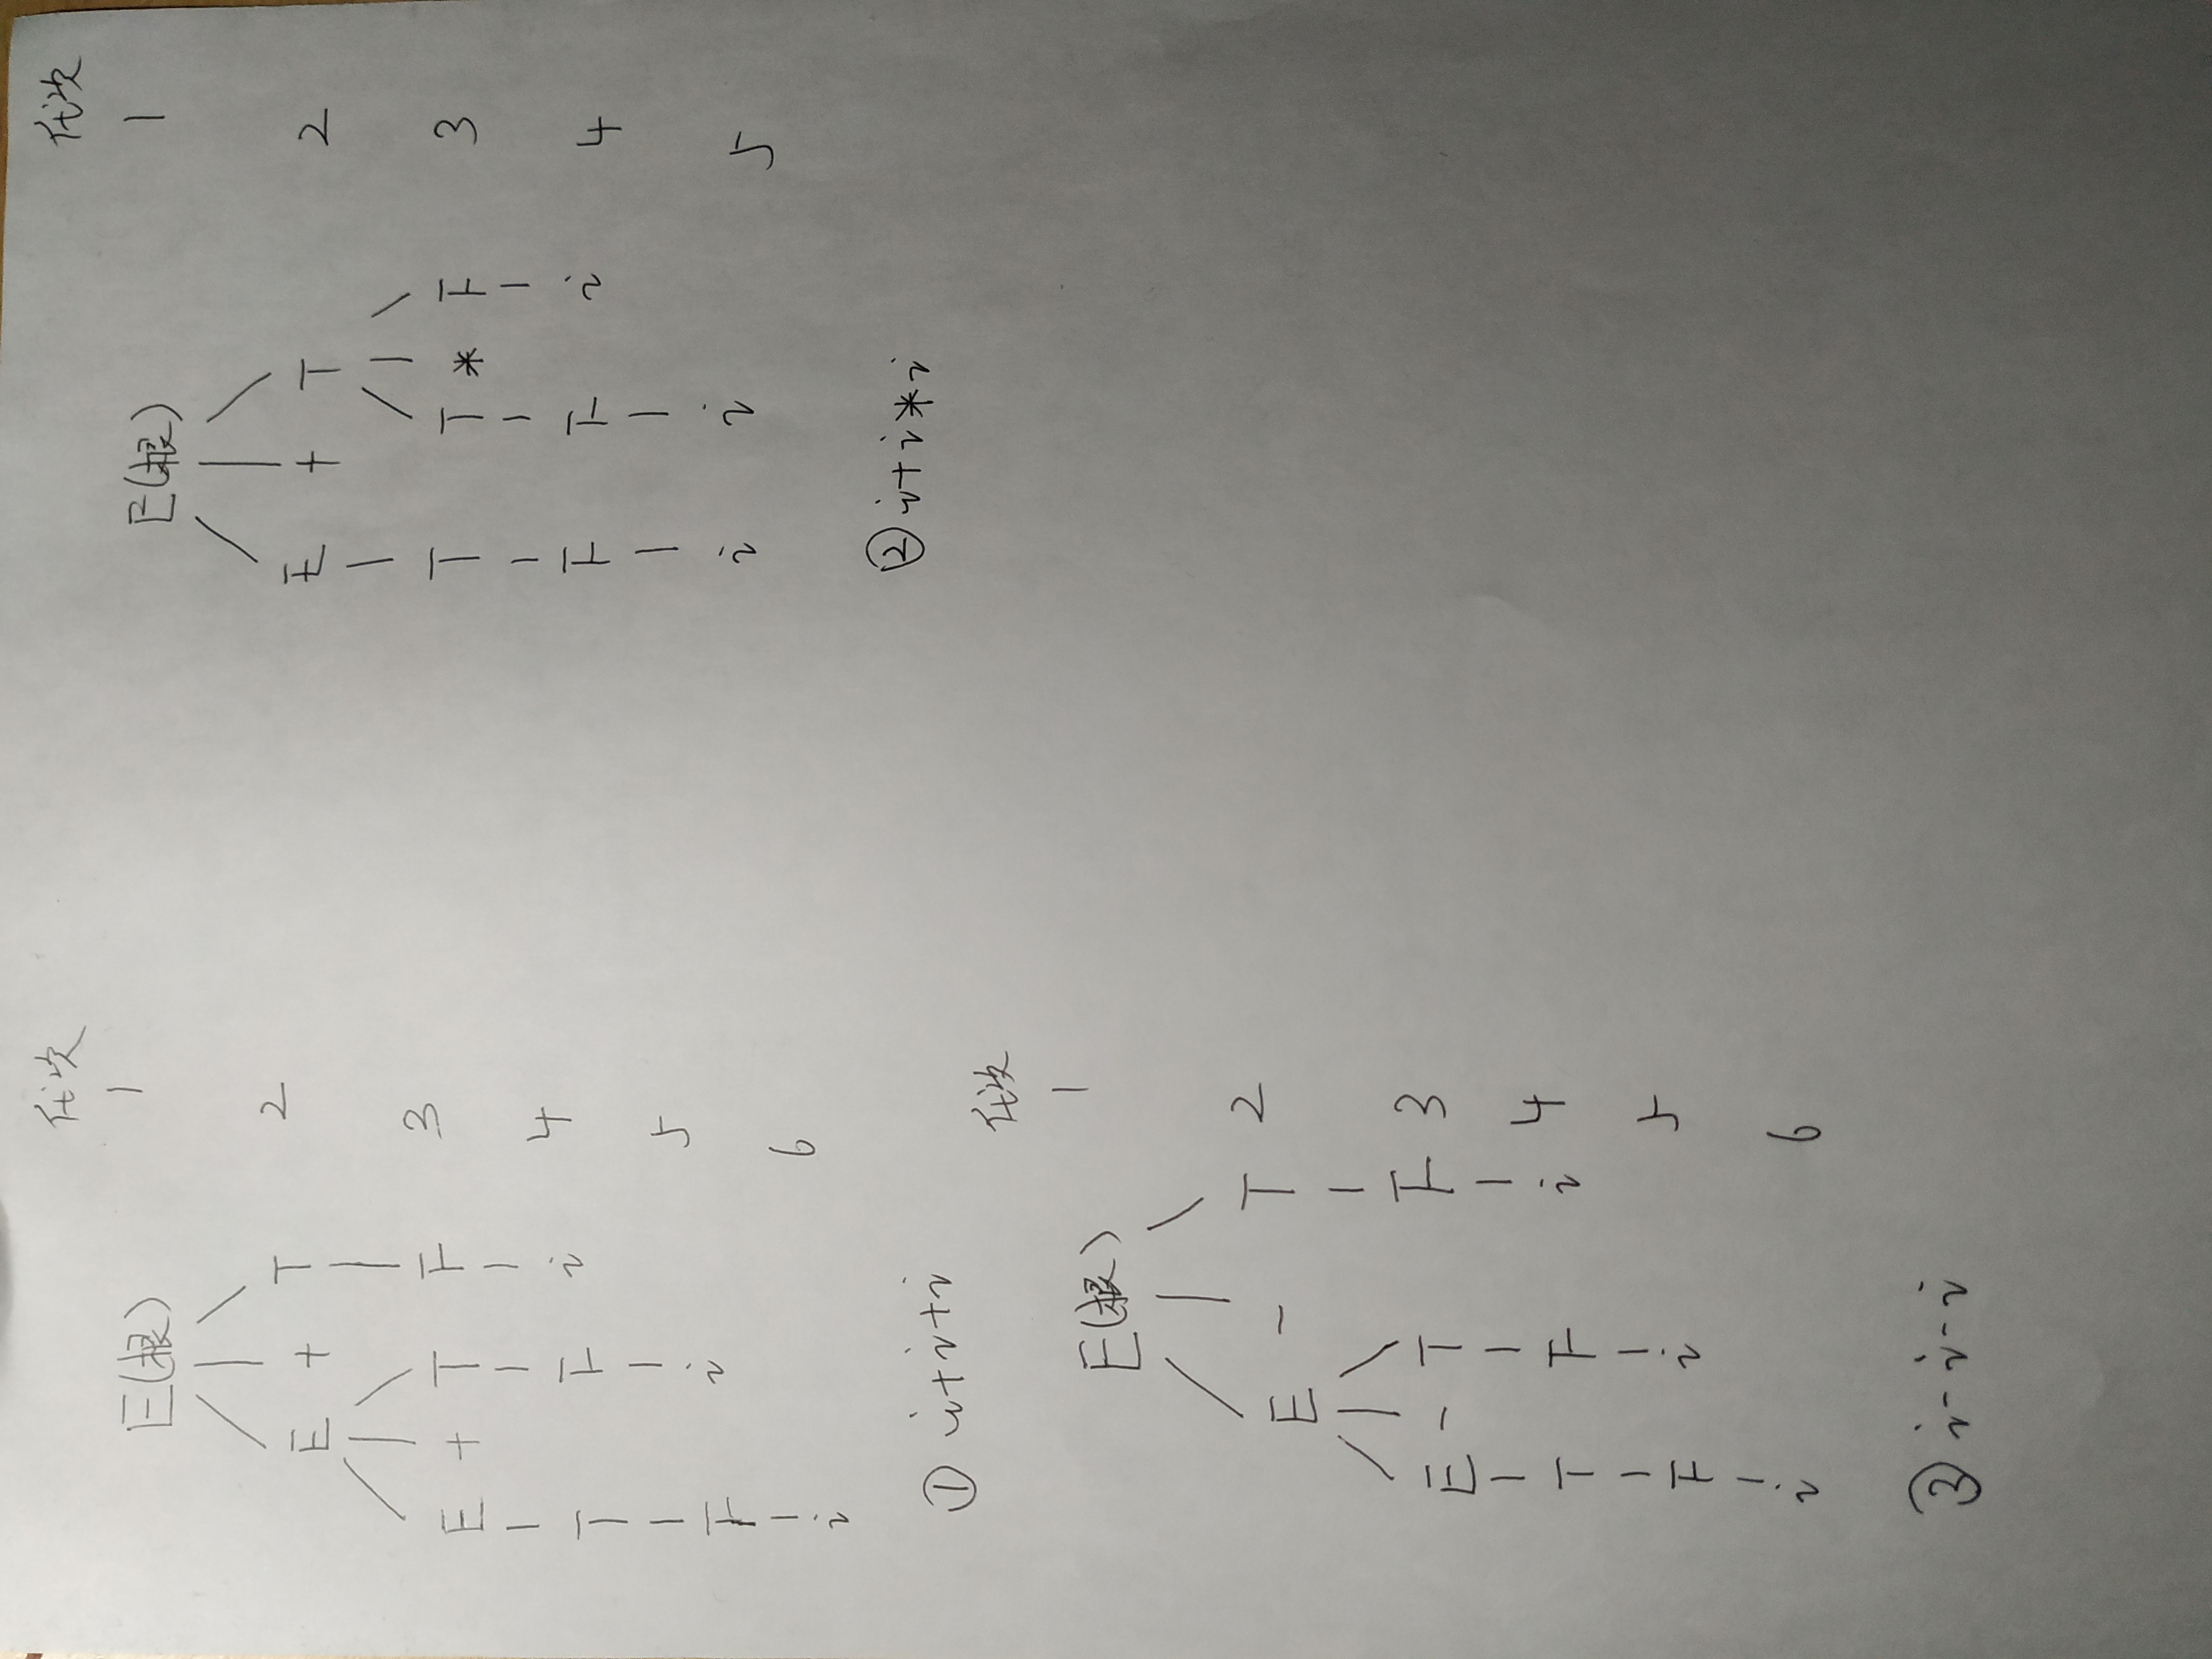 代次
E(根) 1
E + T 2
E + T F 3
T F i 4
F i 5
i 6
① i+i+i
代次
E(根) 1
E + T 2
T T * F 3
F F i 4
i i 5
② i+i*i
代次
E(根) 1
E - T 2
E - T F 3
T F i 4
F i 5
i 6
③ i-i-i